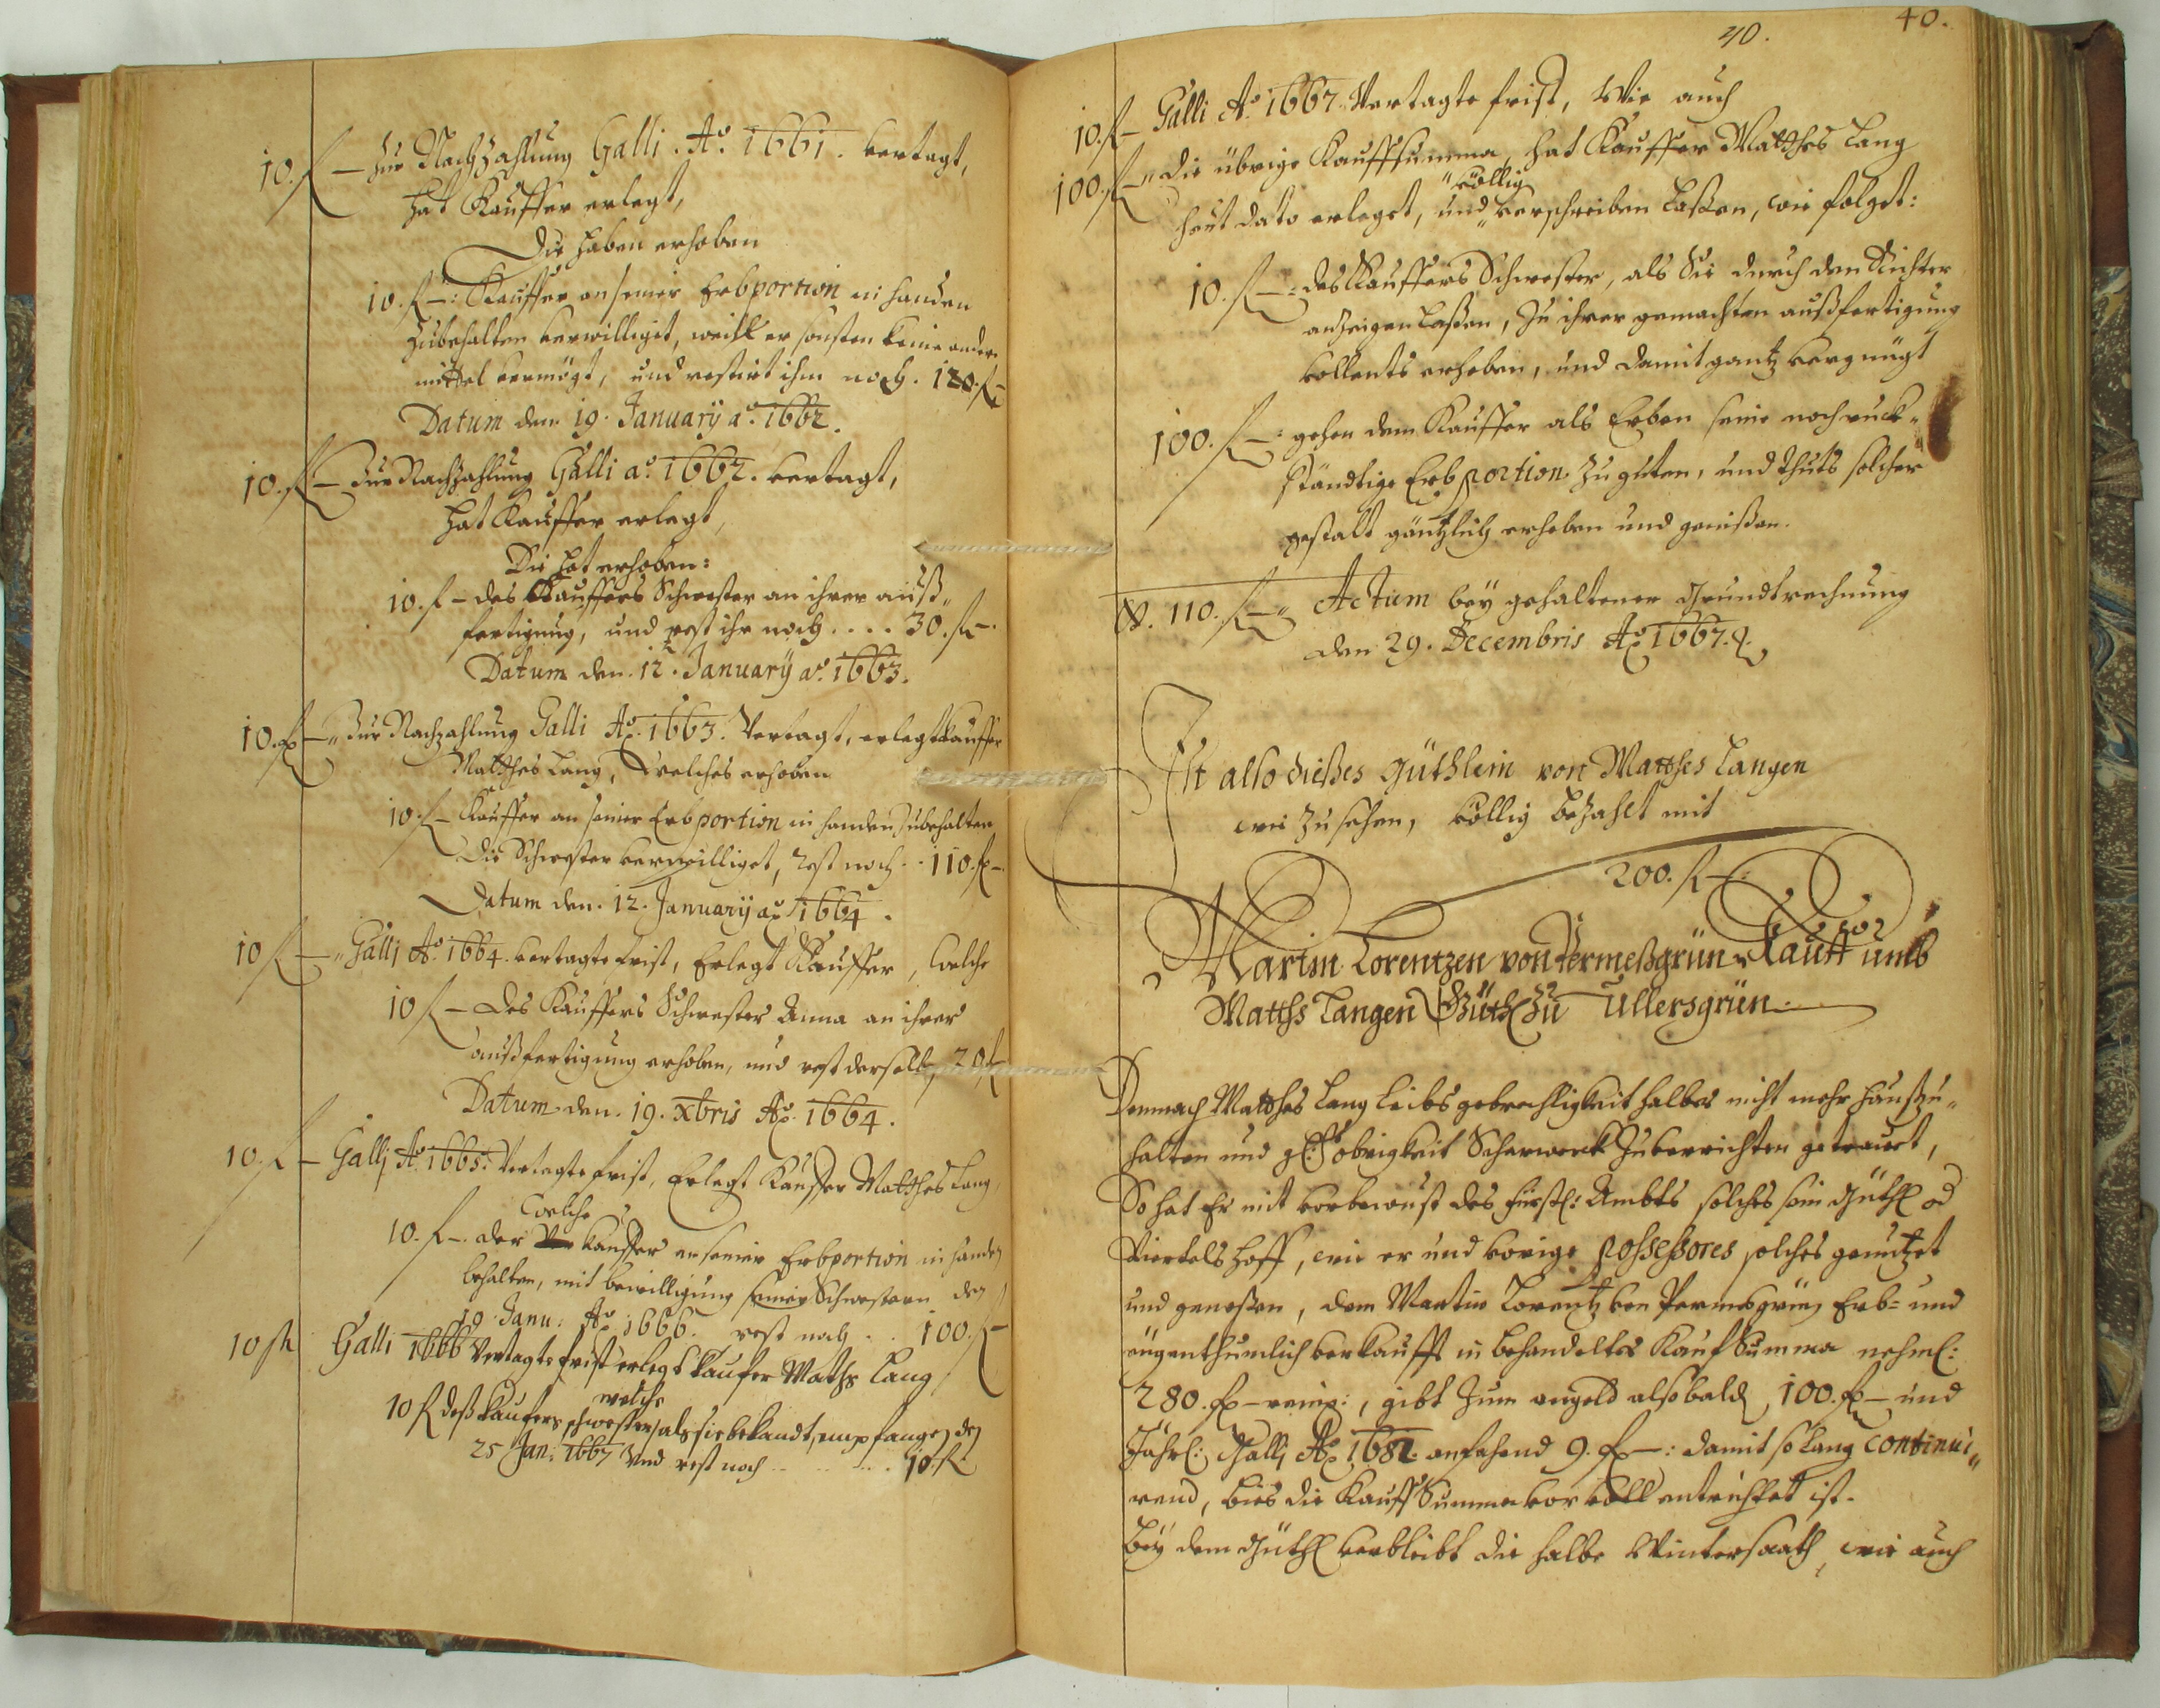 10. f — zur Nachzahlung Galli. Ao. 1661. vertagt,
hat Kauffer erlegt,
Die haben erhoben
10. f —: Kauffer an seiner Erbportion in handen
zubehalten verwilliget, weill er sonsten keine andere
mittel vermögt, und restirt ihm noch. 120. f —
Datum den 19. January ao. 1662.
10. f — Zur Nachzahlung Galli ao. 1662. vertagt,
hat Kauffer erlegt,
Die hat erhoben:
10. f — des Kauffers Schwester an ihrer auß„
fertigung, und rest ihr noch .... 30. f —.
Datum den. 12. January ao. 1663.
10. f —„ Zur Nachzahlung Galli Ao. 1663. Vertagt, erlegt Kauffer
Matthes Lang, Welches erhoben
10. f — Kauffer an seiner Erbportion in handen zubehalten
Die Schwester verwilliget, Rest noch .. 110. f —.
Datum den. 12. January ao 1664.
10 f —„ Galli Ao. 1664. vertagte frist, Erlegt Kauffer, welche
10 f — des Kauffers Schwester Anna an ihrer
außfertigung erhoben, und rest derselb 20 f
Datum den. 19. Xbris Ao. 1664.
10. f — Galli Ao. 1665. Vertagte frist, Erlegt Kauffer Matthes Lang,
welche
10. f —. der Kauffer an seiner Erbportion in handen
behalten, mit bewilligung seiner Schwestern den
19. Janu: Ao 1666. rest noch .. 100. f —
10 fl Galli 1666 Vertagte frist erlegt Kaufer Maths Lang
welche
10 f deß kaufers schwester, als sie bekandt, empfangen den
25 Jan: 1667 Vnd rest noch ..... 10. fl
40. 40.
10. f — Galli Ao. 1667. Vertagte frist, Wie auch
100. f —„ die übrige Kauffsumma, hat Kauffer Matthes Lang
völlig
heut dato erleget, und „ verschreiben laßen, wie folget:
10. f —: des Kauffers Schwester, als Sie durch den Richter
anzeigen laßen, zu ihrer gemachten außfertigung
vollents erhoben, und damit gantz vergnügt
100. f —: gehen dem Kauffer als Erben seine noch ruck„
ständtige Erbportion zu guten, und thuts solcher
gestalt gäntzlich erheben und genißen.
S. 110. f —„ Actum bey gehaltener Grundtrechnung
den 29. Decembris Ao 1667.
Ist also dießes Güthlein von Matthes Langen
wie zu sehen, völlig bezahlt mit
200. f —:
Martin Lorentzen von Permeßgrün Kauff umb
Matths Langen Güth zu Ullersgrün.
Demnach Matthes Lang Leibs gebrechligkeit halber nicht mehr haußzu„
halten und obrigkeit Scharwerk zuverrichten getrauet,
So hat Er mit vorbewust des fürstl: Ambts solches sein Güthl od
Viertels hoff, wie er und vorige Possessores solches genutzet
und genoßen, dem Martin Lorentz von Permesgrün Erb= und
äugenthumlich verkaufft in behandelter Kauf Summa nehml:
280. f — reinisch:, gibt zum angeld alsobald 100. f — und
Jährl: Galli Ao 1681 anfahend 9. f —: damit so lang continui„
rend, bies die Kauff Summa vor voll entrichtet ist.
Bey dem Güthl verbleibt die halbe Wintersaath, wie auch